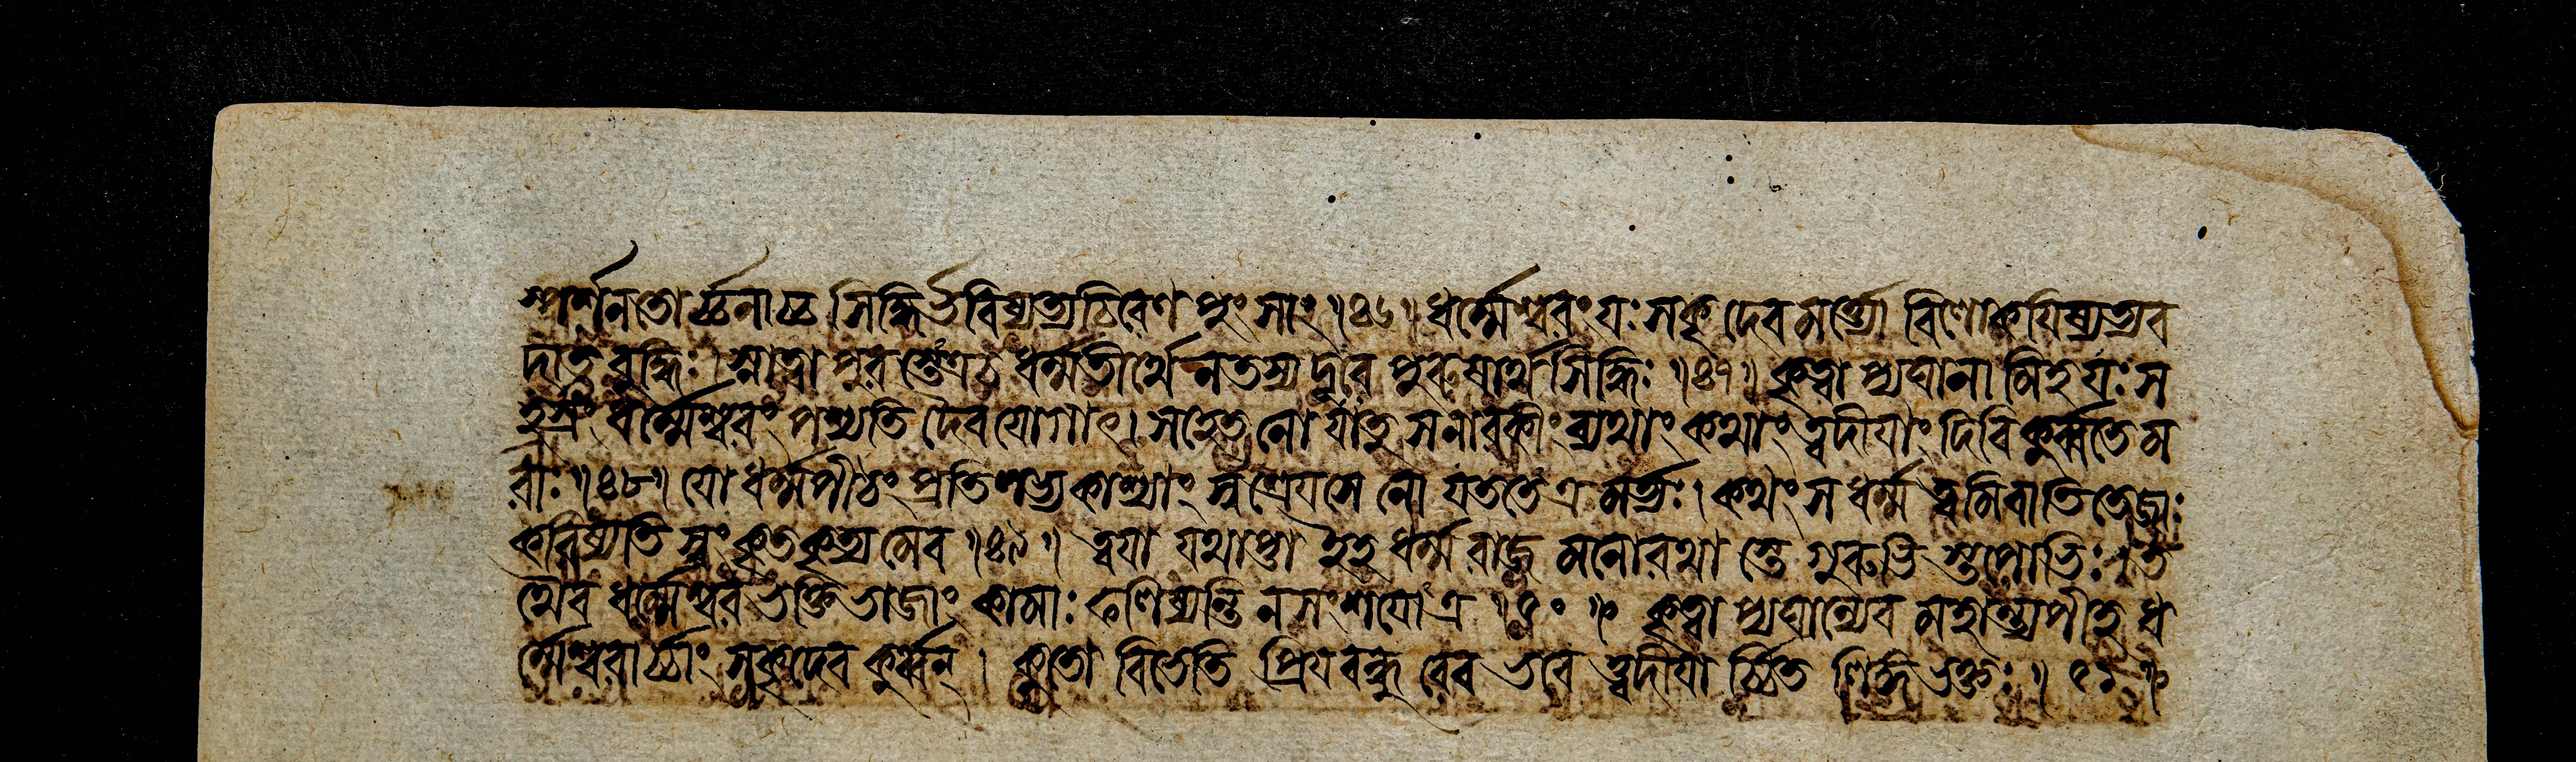 স্পর্শনতোর্চ্চনাচ্চ সিদ্ধির্ভবিষ্যত্যচিরেণ পুংসাং ॥৪৬॥ ধর্ম্মেশ্বরং যঃ সকৃদেব মর্ত্ত্যো বিলোকয়িষ্যত্যব
দাতবুদ্ধিঃ। স্নাত্বা পুরস্তেঽত্র চ ধর্ম্মতীর্থে ন তস্য দূরে পুরুষার্থসিদ্ধিঃ ॥৪৭॥ কৃত্বাপ্যঘানামিহ যঃ স
হস্রং ধর্ম্মেশ্বরং পশ্যতি দৈবযোগাৎ। সহেত নো যাতু স নারকীং ব্যথাং কথাং ত্বদীয়াং দিবি কুর্ব্বতে ম
রাঃ ॥৪৮॥ যো ধর্ম্মপীঠং প্রতিলভ্য কাশ্যাং স্বশ্রেয়সে নো যততেঽত্র মর্ত্ত্যঃ। কথং স ধর্ম্ম ত্বমিবাতিতেজাঃ
করিষ্যতি স্বং কৃতকৃত্যমেব ॥৪৯॥ ত্বয়া যথাপ্তা ইহ ধর্ম্মরাজ মনোরথাস্তে গুরুভিস্তপোভিঃ। ত
থৈব ধর্ম্মেশ্বরভক্তিভাজাং কামাঃ ফলিষ্যন্তি ন সংশয়োঽত্র ॥৫০॥ কৃত্বাপ্যঘান্যেব মহান্ত্যপীহ ধ
র্ম্মেশ্বরার্চ্চাং সকৃদেব কুর্ব্বন্। কুতো বিভেতি প্রিয়বন্ধুরেব ভবে ত্বদীয়ার্চ্চিতলিঙ্গভক্তঃ ॥৫১॥